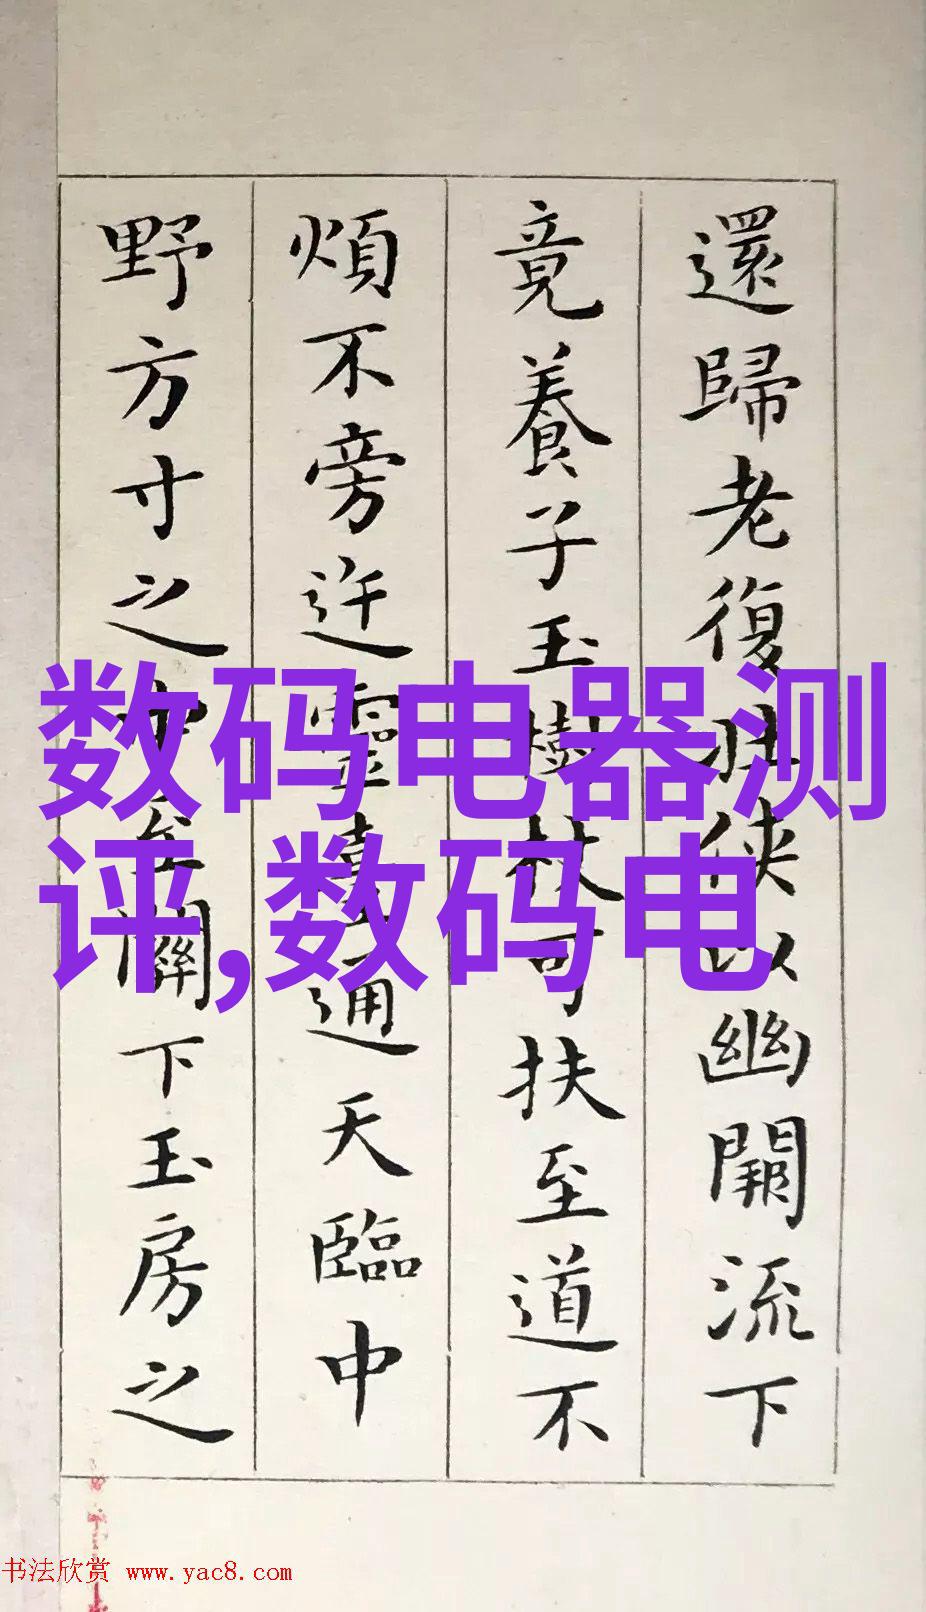 還歸老復壯俠以幽闕流下
竟養子玉樹杖可扶至道不
煩不旁迕靈臺通天臨中
野方寸之中至關下玉房之
数码电器测
评,数码电
书法欣赏 www.yac8.com